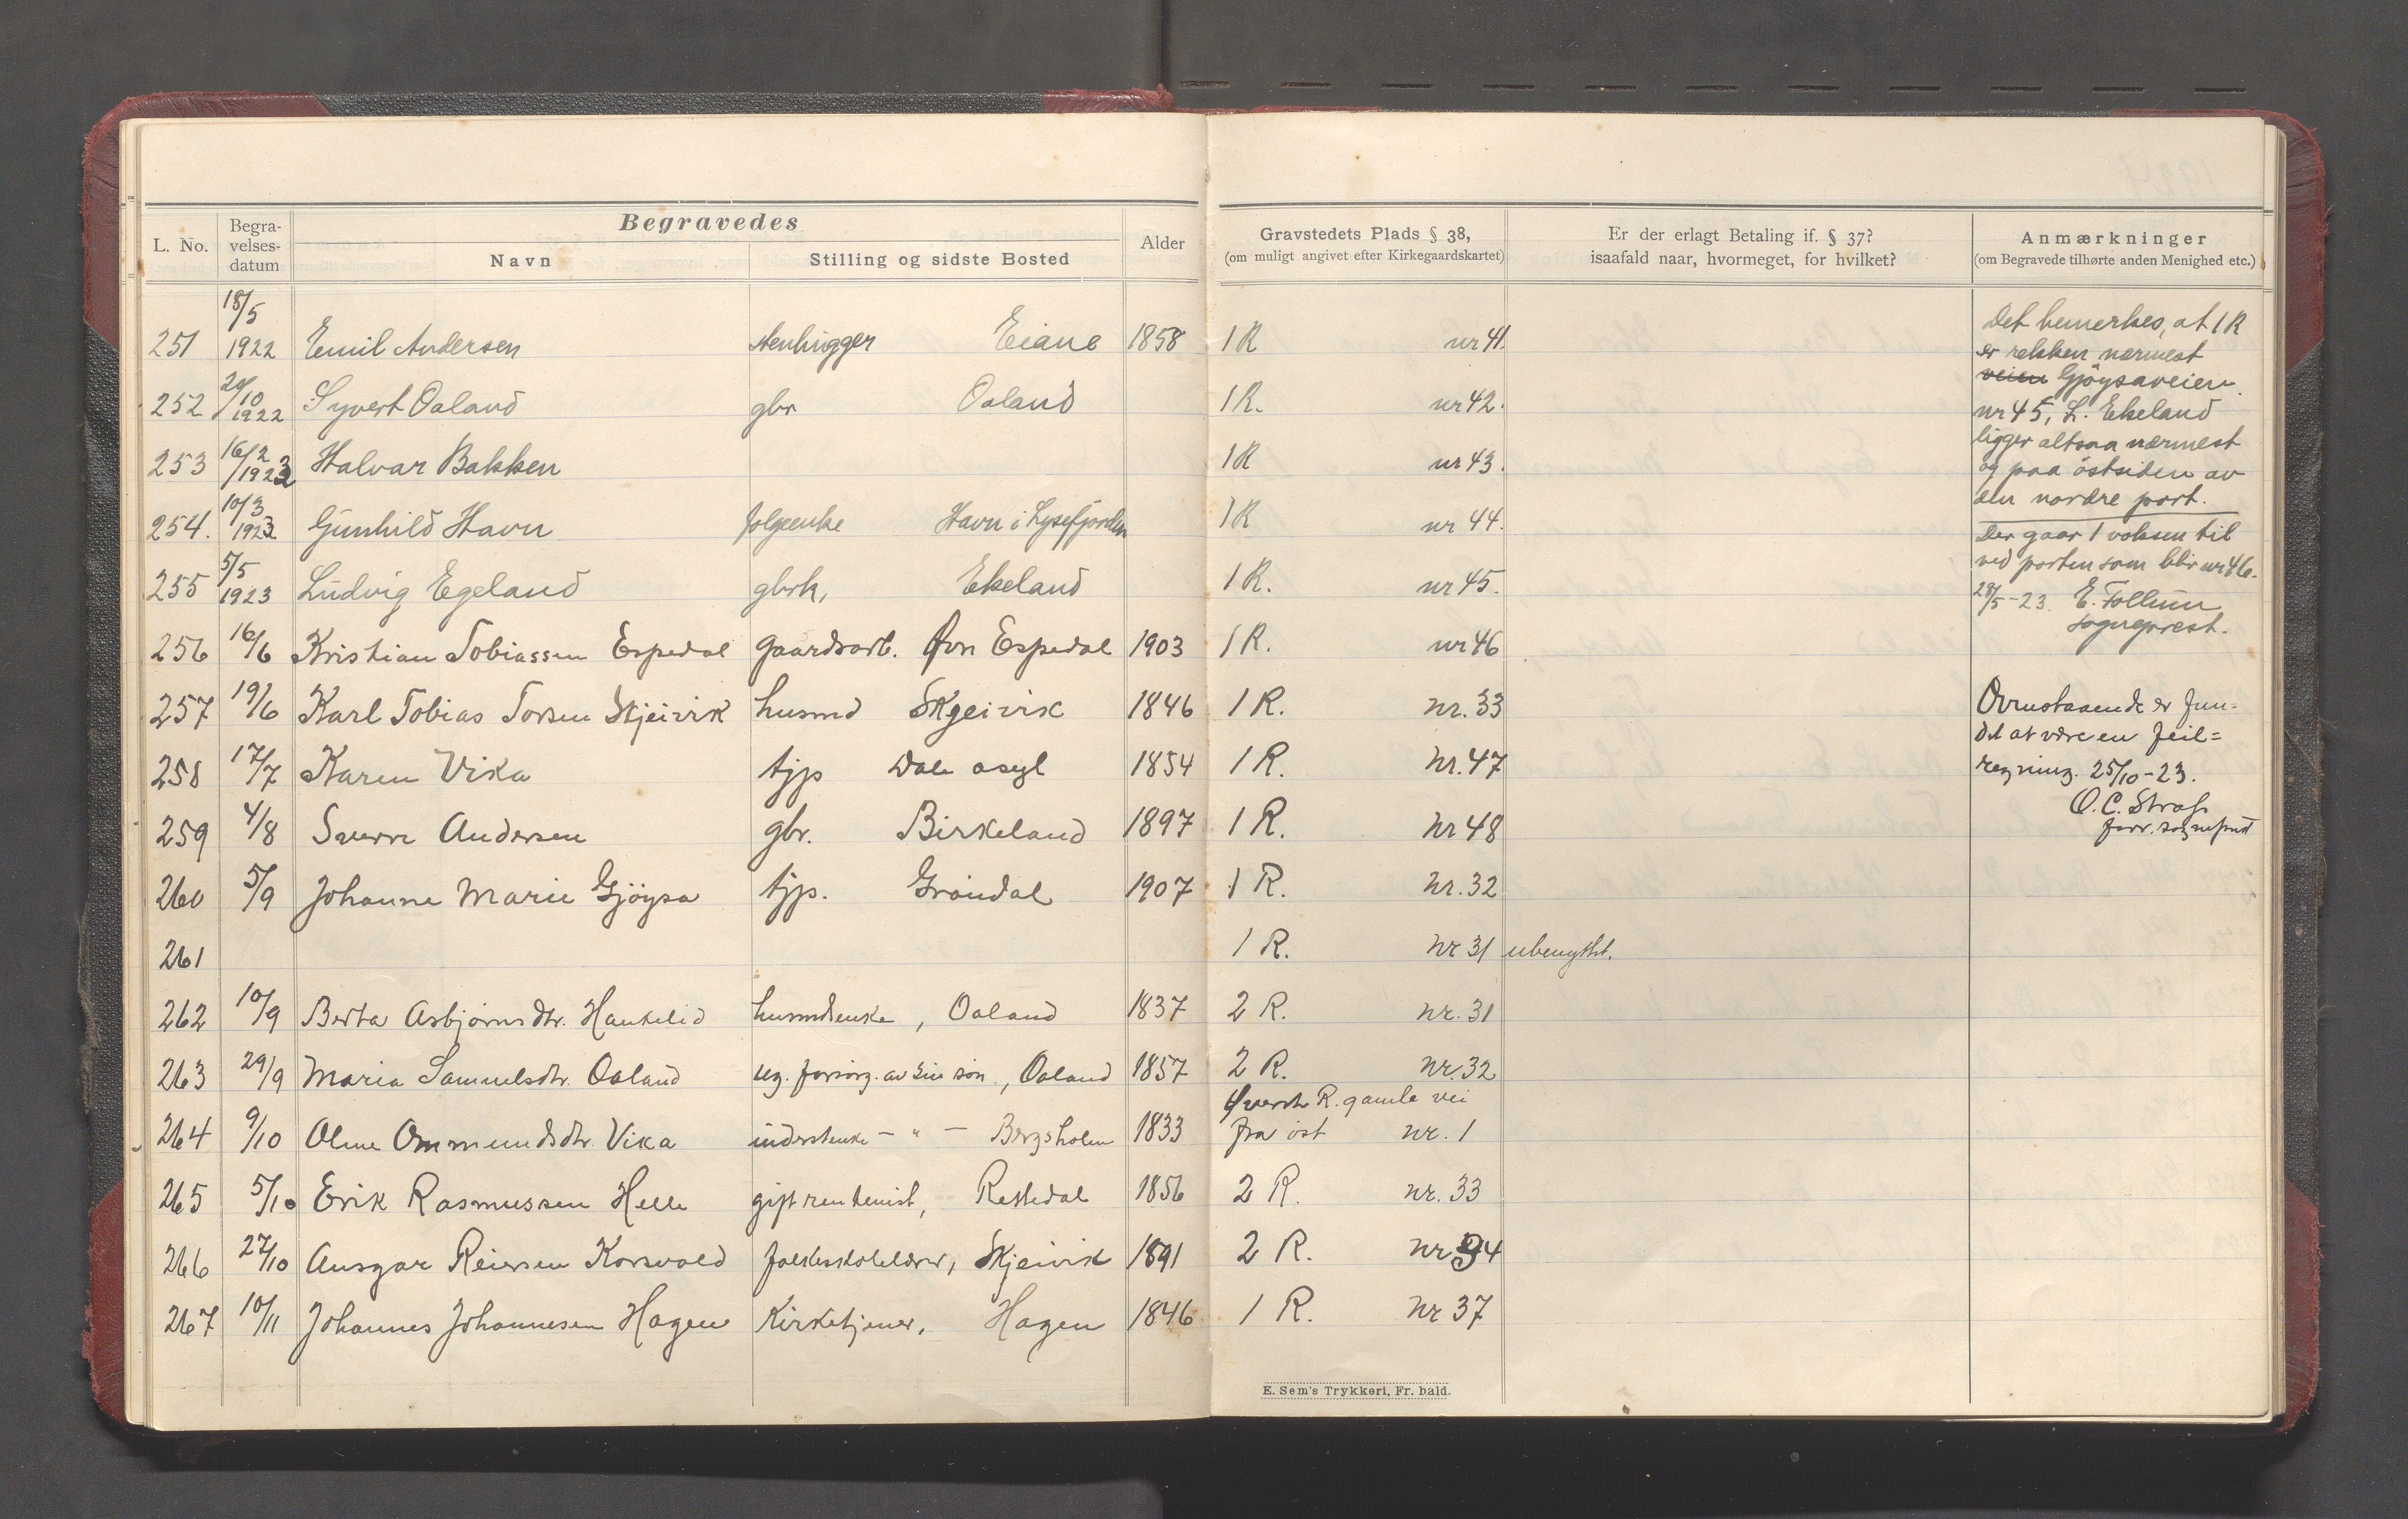 Begravedes
L. No. Begra-velses-datum Navn Stilling og sidste Bosted Alder Gravstedets Plads § 38, (om muligt angivet efter Kirkegaardskartet) Er der erlagt Betaling if. § 37? isaafald naar, hvormeget, for hvilket? Anmærkninger (om Begravede tilhørte anden Menighed etc.)
251 18/5 1922 Emil Andersen stenhugger Eiane 1858 1 R nr 41.
252 20/10 1922 Syvert Oaland gbr Oaland 1 R. nr 42.
253 16/2 1923 Halvar Bakken 1 R nr 43.
254. 10/3 1923 Gunhild Havn Havn i Lysefjorden 1 R nr 44.
255 5/5 1923 Ludvig Egeland gbrk, Ekeland 1 R. nr 45.
256 16/6 Kristian Tobiassen Espedal gaardsarb. Øvr Espedal 1903 1 R. nr 46
257 19/6 Karl Tobias Torsen Skjeivik husmd Skjeivik 1846 1 R. nr. 33
258 17/7 Karen Vika tjp Dale asyl 1854 1 R. Nr. 47
259 4/8 Sverre Andersen gbr. Birkeland 1897 1 R. Nr 48
260 5/9 Johanne Marie Gjöysa tjp. Gröndal 1907 1 R. Nr. 32
261 1 R. Nr 31 ubenyttet.
262 10/9 Berta Asbjörnsdtr. Haukelid husmdsenke, Oaland 1837 2 R. nr. 31
263 29/9 Maria Samuelsdtr. Oaland ug. forsörg. av sin sön, Oaland 1857 2 R. Nr. 32
264 9/10 Oline Ommundsdtr. Vika inderstenke — " — Bergsholm 1833 Øverste R. gamle vei
fra öst nr. 1
265 5/10 Erik Rasmussen Helle gift rentenist, Rettedal 1856 2 R. nr. 33
266 27/10 Ansgar Reiersen Korsvold folkeskolelærer, Skjeivik 1891 2 R. nr 34
267 10/11 Johannes Johannesen Hagen Kirketjener, Hagen 1846 1 R. Nr 37
Det bemerkes, at 1 R
er rekken nærmest
veien Gjöysaveien.
nr 45, L. Ekeland
ligger altsaa nærmest
og paa östsiden av
den nordre port.
Der gaar 1 voksen til
ved porten som blir nr 46.
28/5-23. E. Follum
sogneprest.
Ovenstaaende er fun-
det at være en feil=
regning. 25/10-23.
O. C.
E. Sem's Trykkeri, Fr. hald.